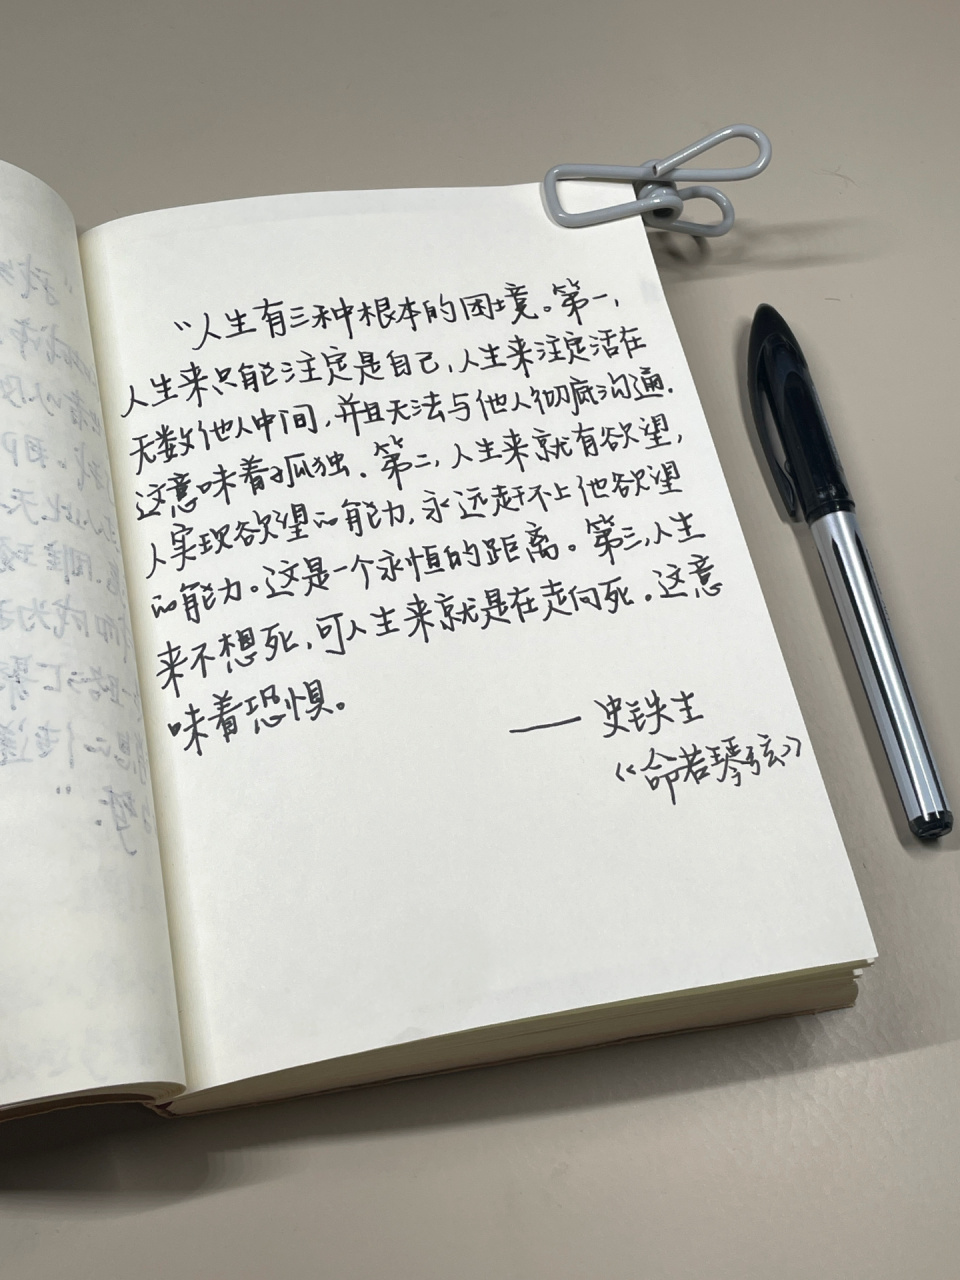 “人生有三种根本的困境。第一,
人生来只能注定是自己,人生来注定活在
无数他人中间,并且无法与他人彻底沟通.
这意味着孤独.第二,人生来就有欲望,
人实现欲望的能力,永远赶不上他欲望
的能力。这是一个永恒的距离。第三,人生
来不想死,可人生来就是在走向死.这意
味着恐惧。
——史铁生
《命若琴弦》